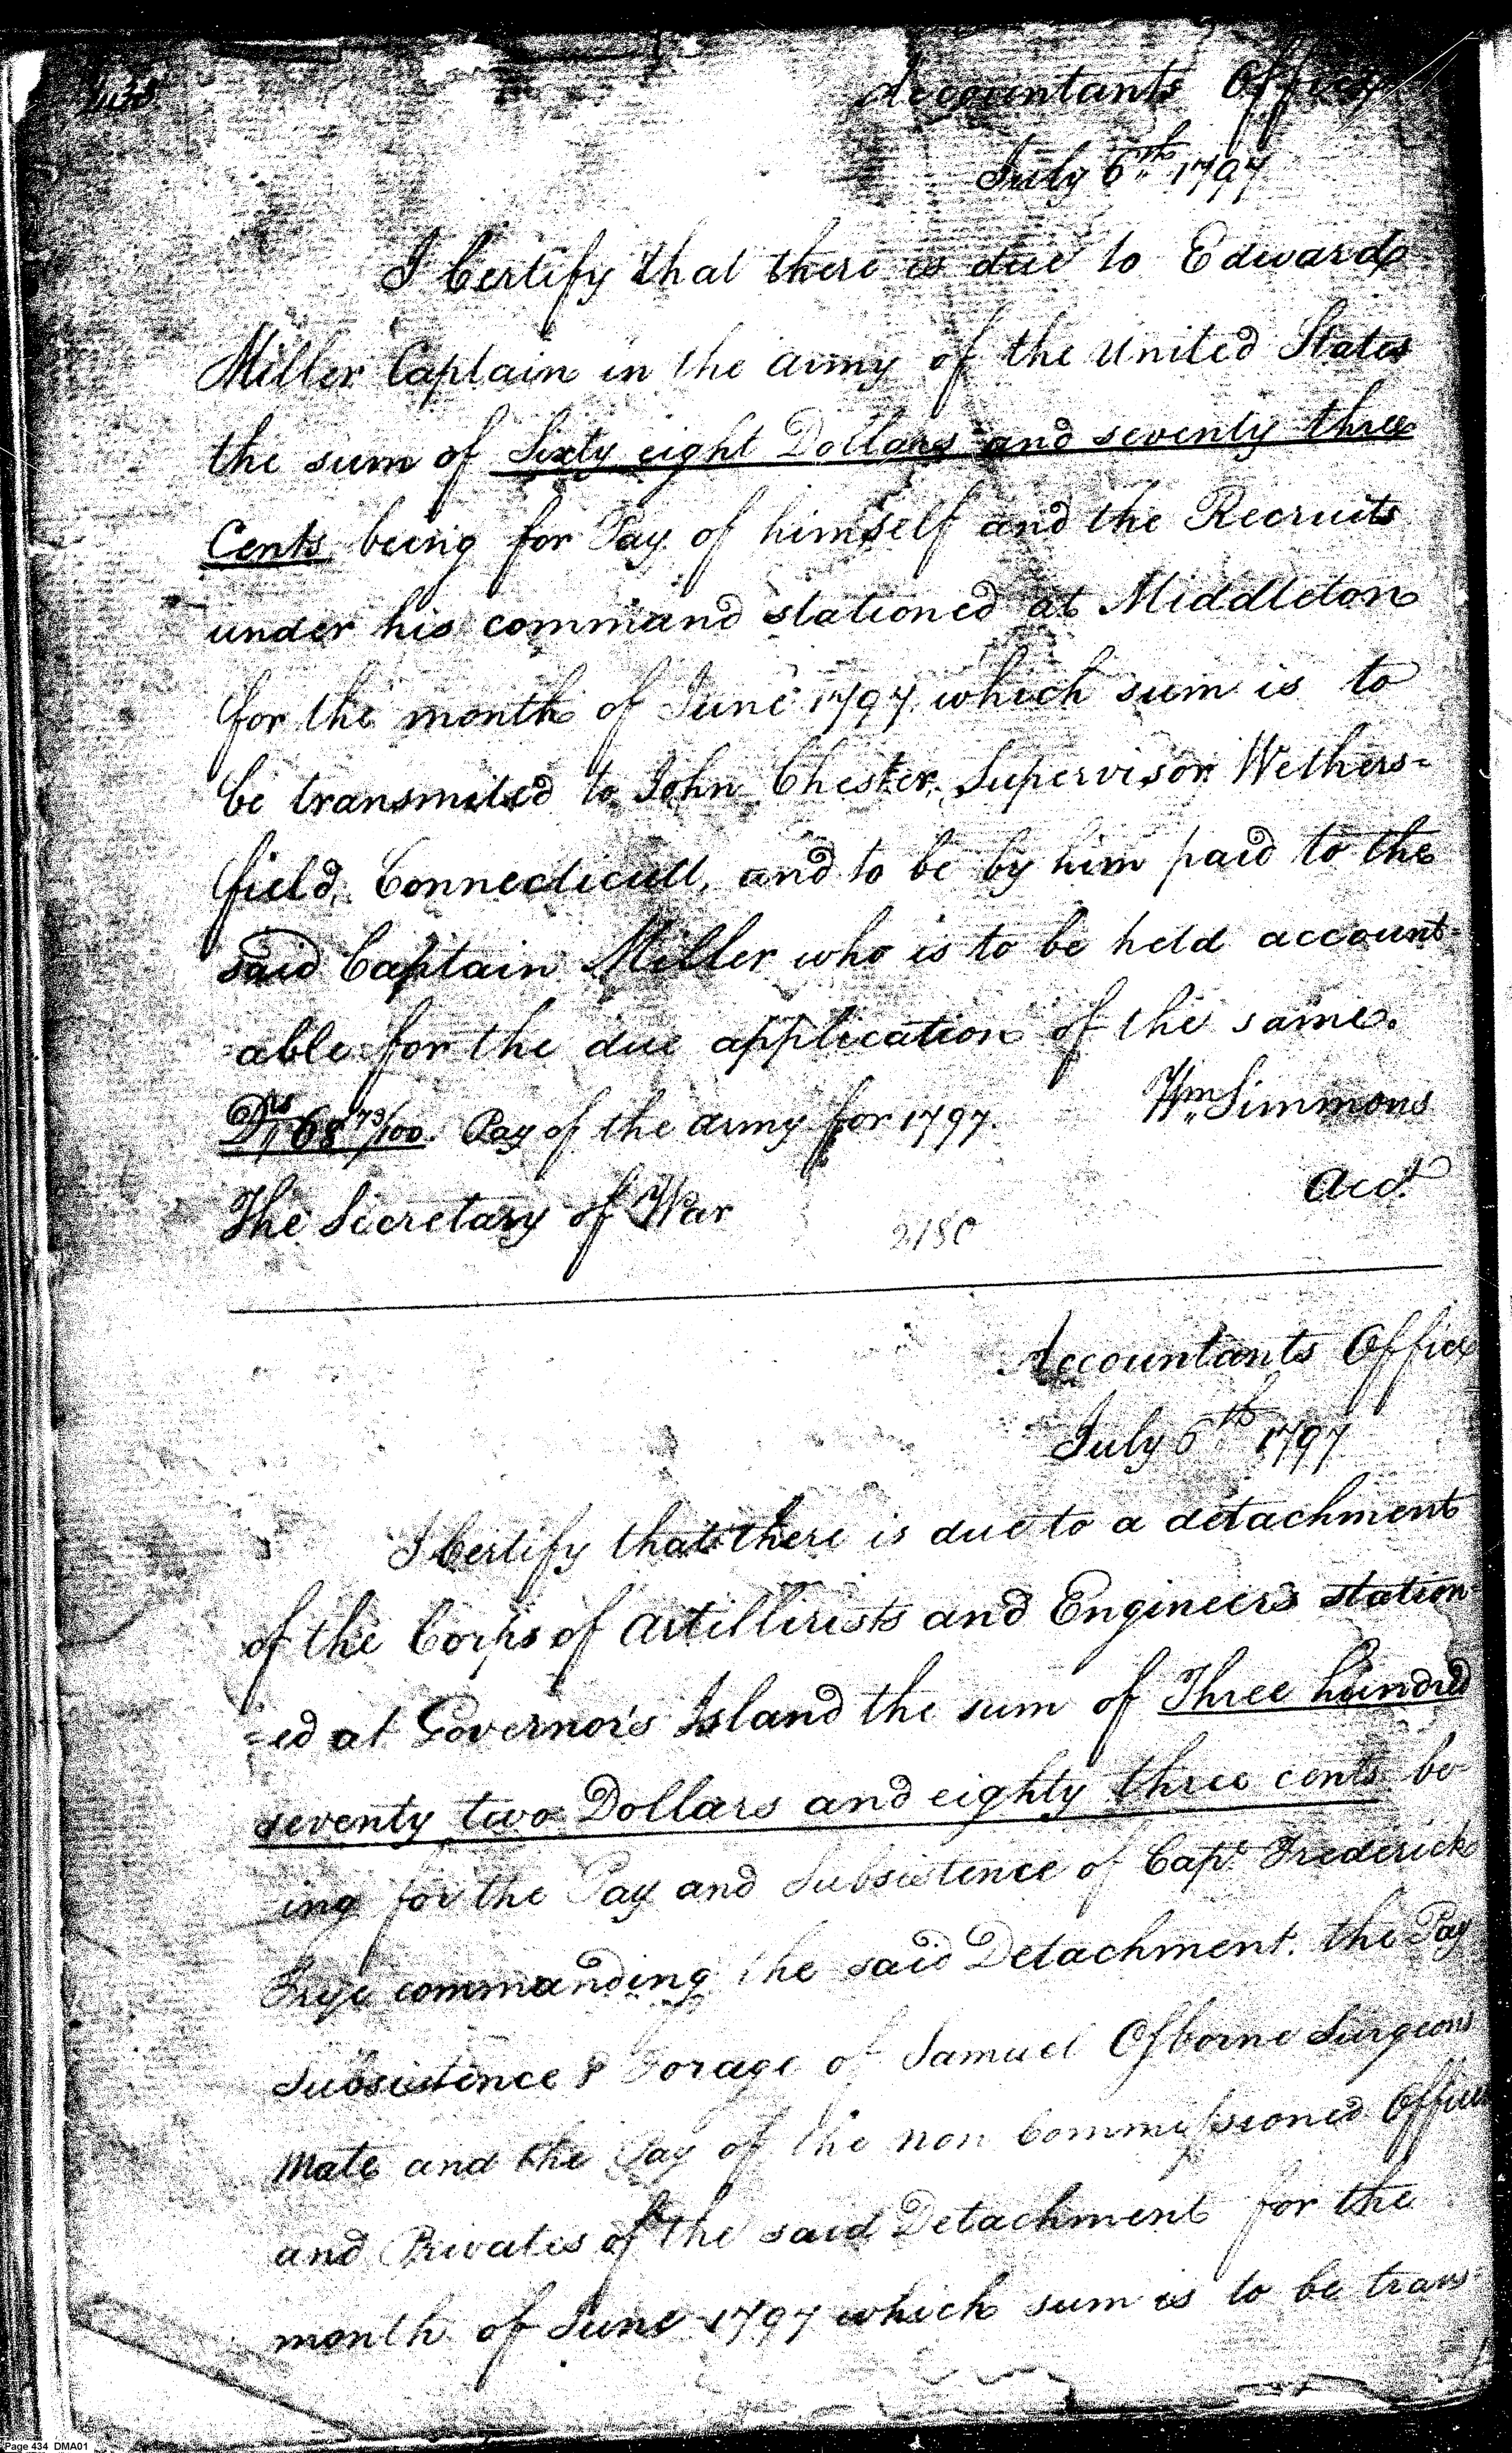 Accountants Office
July 6th 1797
I Certify that there is due to Edward
Miller Captain in the army of the United States
the sum of Sixty eight Dollars and seventy three
Cents being for Pay of himself and the Recruits
under his command stationed at Middleton
for the month of June 1797 which sum is to
be transmited to John Chester, Supervisor Wethers=
field, Connecticutt, and to be by him paid to the
said Captain Miller who is to be held account-
able for the due application of the same.
Drs 68 73/100. Pay of the army for 1797.
Wm Simmons
Acct.
The Secretary of War
2180
Accountants Office
July 6th 1797
I Certify that there is due to a detachment
of the Corps of Artillirists and Engineers station=
=ed at Governor's Island the sum of Three hundred
seventy two Dollars and eighty three cents be
ing for the Pay and Subsistence of Capt. Frederick
Frye commanding the said Detachment. the Pay
Subsistence & Forage of Samuel Osborne Surgeons
Mate and the Pay of the non Commissioned Officers
and Privates of the said Detachment for the
month of June 1797 which sum is to be trans-
Page 434 DMA01